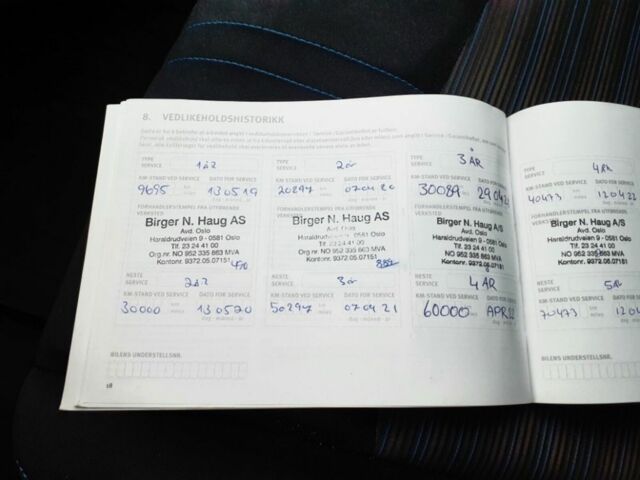 8. VEDLIKEHOLDSHISTORIKK
TYPE SERVICE 1 år
KM-STAND VED SERVICE DATO FOR SERVICE
9695 130519
FORHANDLERSTEMPEL FRA UTFØRENDE VERKSTED
Birger N. Haug AS
Avd. Oslo
Haraldrudveien 9 - 0581 Oslo
Tlf. 23 24 41 00
Org.nr. NO 952 335 663 MVA
Kontonr. 9372.05.07151
NESTE SERVICE 2 år
KM-STAND VED SERVICE DATO FOR SERVICE
30000 130520
TYPE SERVICE 2 år
KM-STAND VED SERVICE DATO FOR SERVICE
20297 070420
FORHANDLERSTEMPEL FRA UTFØRENDE VERKSTED
Birger N. Haug AS
Avd. Oslo
Haraldrudveien 9 - 0581 Oslo
Tlf. 23 24 41 00
Org.nr NO 952 335 663 MVA
Kontonr. 9372.05.07151
NESTE SERVICE 3 år
KM-STAND VED SERVICE DATO FOR SERVICE
50297 070421
TYPE SERVICE 3 ÅR
KM-STAND VED SERVICE DATO FOR SERVICE
30089 290421
FORHANDLERSTEMPEL FRA UTFØRENDE VERKSTED
Birger N. Haug AS
Avd. Oslo
Haraldrudveien 9 - 0581 Oslo
Tlf. 23 24 41 00
Org.nr NO 952 335 663 MVA
Kontonr. 9372.05.07151
NESTE SERVICE 4 ÅR
KM-STAND VED SERVICE DATO FOR SERVICE
60000 APR 22
BILENS UNDERSTELLSNR.
18
TYPE SERVICE 4 ÅR
KM-STAND VED SERVICE DATO FOR SERVICE
40473 120422
FORHANDLERSTEMPEL FRA UTFØRENDE VERKSTED
Birger N. Haug AS
Avd. Oslo
Haraldrudveien 9 - 0581 Oslo
Tlf. 23 24 41 00
Org.nr NO 952 335 663 MVA
Kontonr. 9372.05.07151
NESTE SERVICE 5 ÅR
KM-STAND VED SERVICE DATO FOR
70473 1204
BILENS UNDERSTELLSNR.